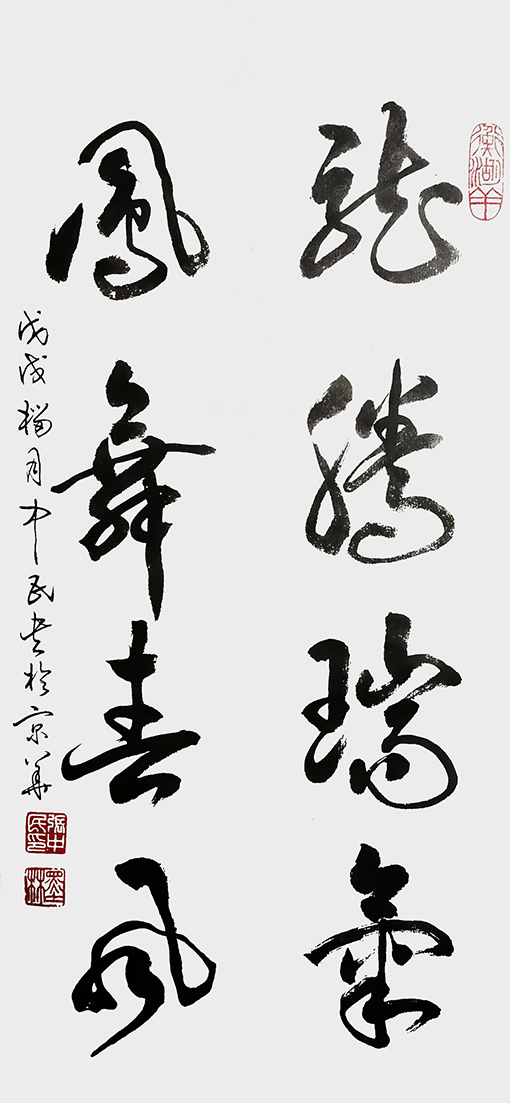 龍騰瑞氣
鳳舞春風
戊戌榴月中民书於京華
張中民印
墨林